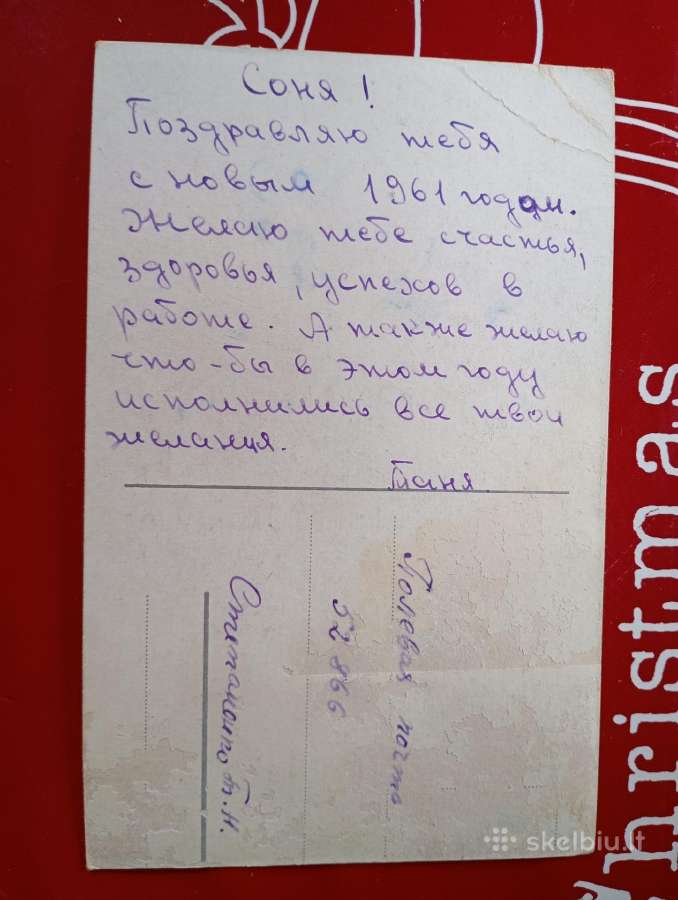 Соня!
Поздравляю тебя
с новым 1961 годом.
Желаю тебе счастья,
здоровья, успехов в
работе. А также желаю
что-бы в этом году
исполнились все твои
желания.
Таня
Полевая почта
52866
Т.Н.
skelbiu.lt
Christmas